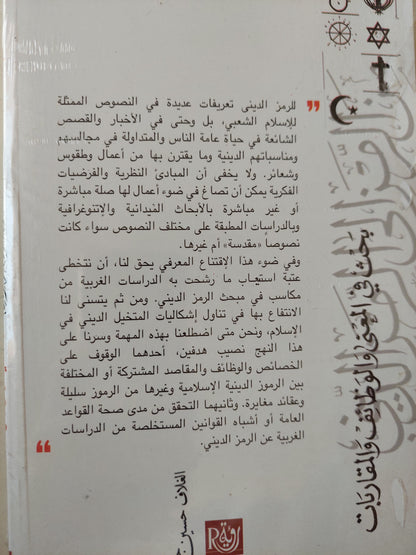 من الرمز إلى الرمز الديني
بحث في المعنى والوظائف والمقاربات
" للرمز الديني تعريفات عديدة في النصوص الممثلة
للإسلام الشعبي، بل وحتى في الأخبار والقصص
الشائعة في حياة عامة الناس والمتداولة في مجالسهم
ومناسباتهم الدينية وما يقترن بها من أعمال وطقوس
وشعائر. ولا يخفى أن المبادئ النظرية والفرضيات
الفكرية يمكن أن تصاغ في ضوء أعمال لها صلة مباشرة
أو غير مباشرة بالأبحاث الميدانية والإتنوغرافية
وبالدراسات المطبقة على مختلف النصوص سواء كانت
نصوصاً «مقدسة» أم غيرها.
وفي ضوء هذا الإقتناع المعرفي يحق لنا، أن نتخطى
عتبة استيعاب ما رشحت به الدراسات الغربية من
مكاسب في مبحث الرمز الديني. ومن ثم يتسنى لنا
الانتفاع بها في تناول إشكاليات المتخيل الديني في
الإسلام، ونحن متى اضطلعنا بهذه المهمة وسرنا على
هذا النهج نصيب هدفين، أحدهما الوقوف على
الخصائص والوظائف والمقاصد المشتركة أو المختلفة
بين الرموز الدينية الإسلامية وغيرها من الرموز سليلة
وعقائد مغايرة. وثانيهما التحقق من مدى صحة القواعد
العامة أو أشباه القوانين المستخلصة من الدراسات
الغربية عن الرمز الديني. "
الغلاف حسين
رؤية
R